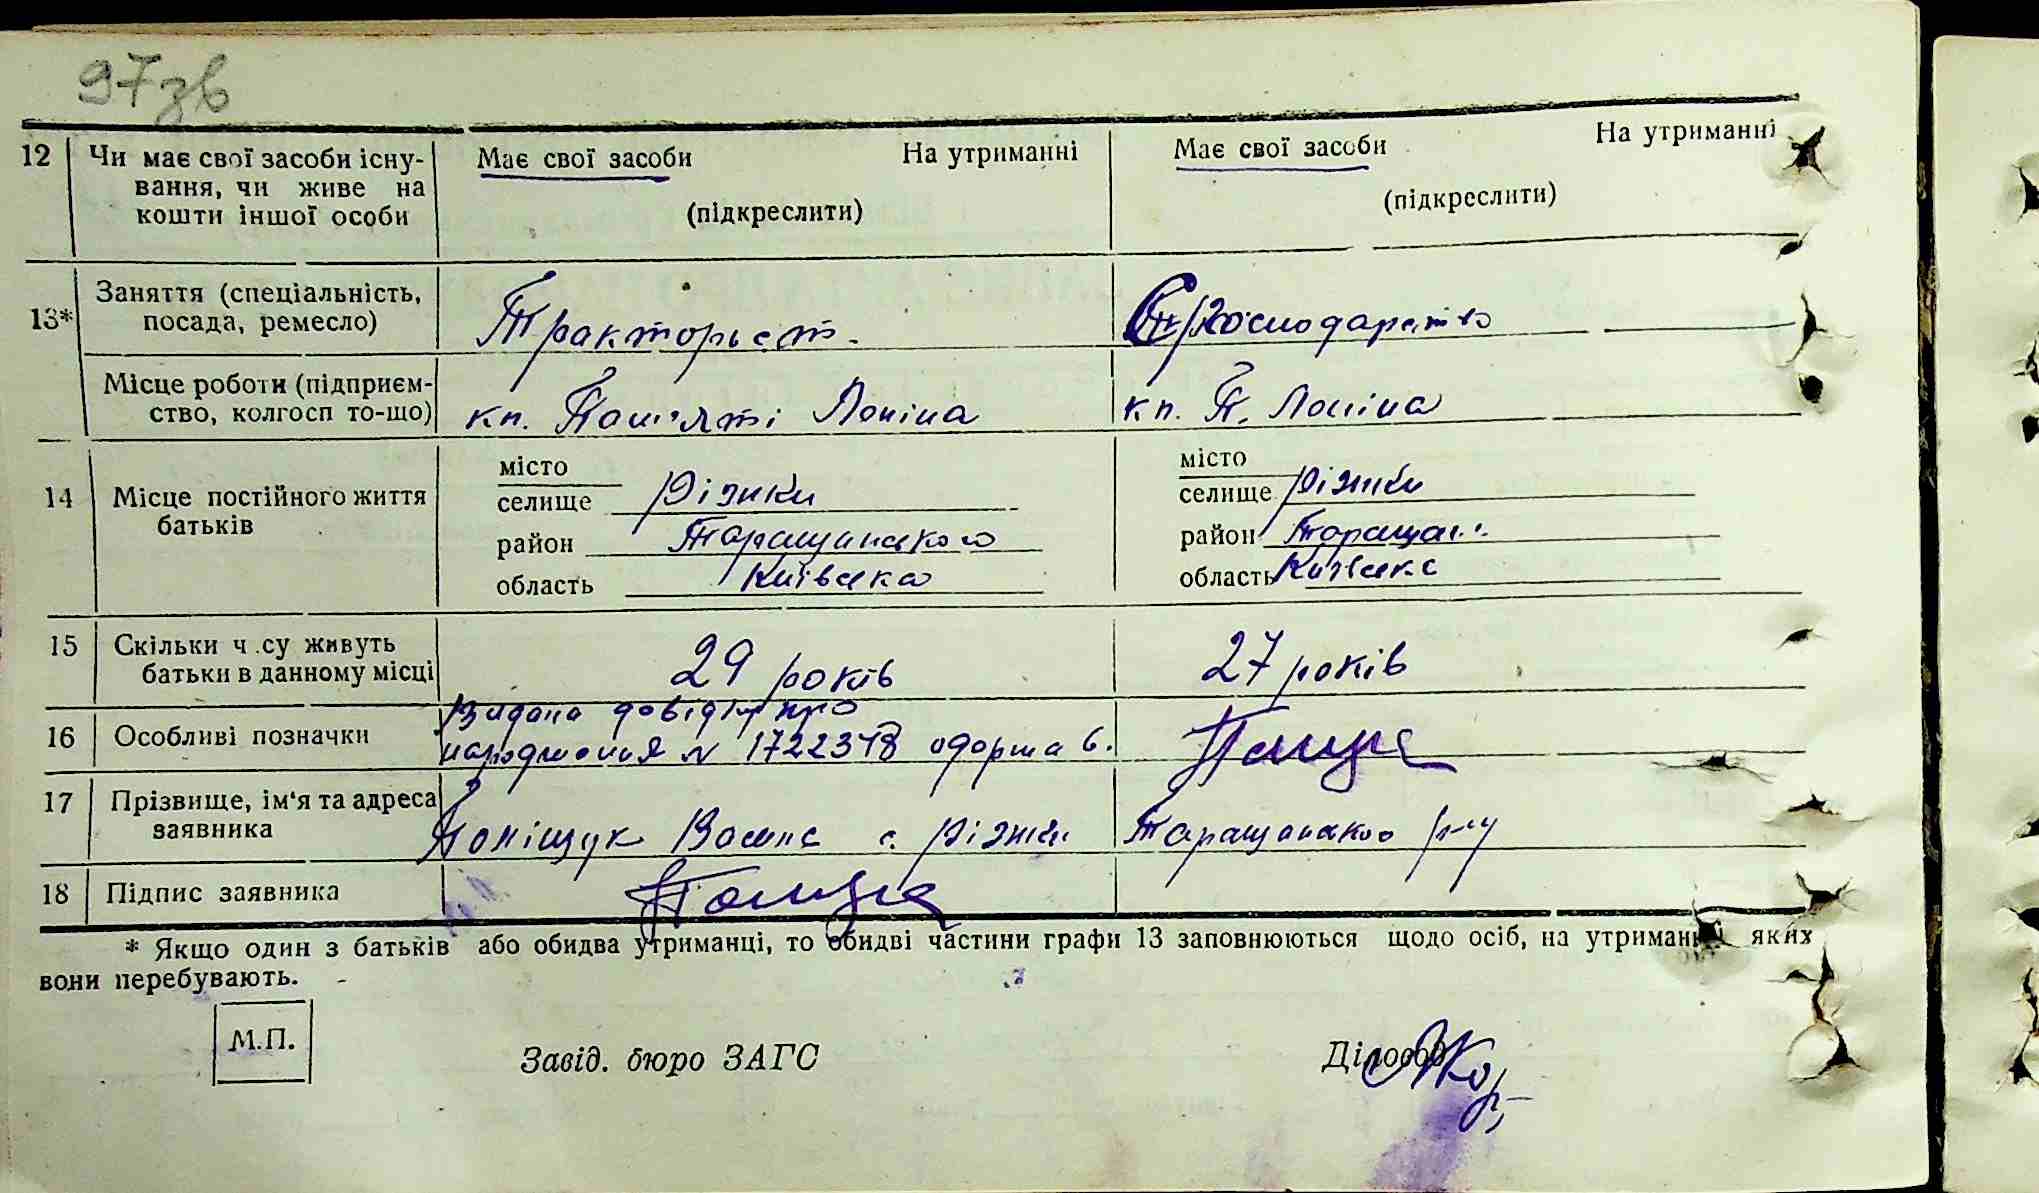 97зв
12 Чи має свої засоби існу- Має свої засоби На утриманні Має свої засоби На утриманні
вання, чи живе на
кошти іншої особи (підкреслити) (підкреслити)
13* Заняття (спеціальність,
посада, ремесло) Тракторист. господарство
Місце роботи (підприєм-
ство, колгосп то-що) кп. Пам'яті Леніна кп. П. Леніна
14 Місце постійного життя
батьків
місто місто
селище Ріжки селище Ріжки
район Таращанського район Таращан..
область Київська область Київська
15 Скільки ч.су живуть
батьки в данному місці 29 років 27 років
16 Особливі позначки Видана довідку про
народження N 1722348 форма 6.
17 Прізвище, ім'я та адреса
заявника Поліщук с. Ріжки Таращанского р-ну
18 Підпис заявника
* Якщо один з батьків або обидва утриманці, то обидві частини графи 13 заповнюються щодо осіб, на утриманні яких
вони перебувають.
М.П.
Завід. бюро ЗАГС Діловод